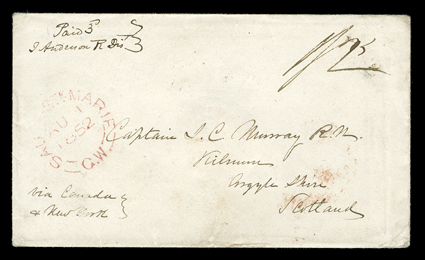 Paid 3
J Anderson
1/2
SAULT STE MARIE C.W.
AU 1
1852
Captain J. C. Murray R.N.
Kilmun
Argyle Shire
Scotland
via Canada
& New York